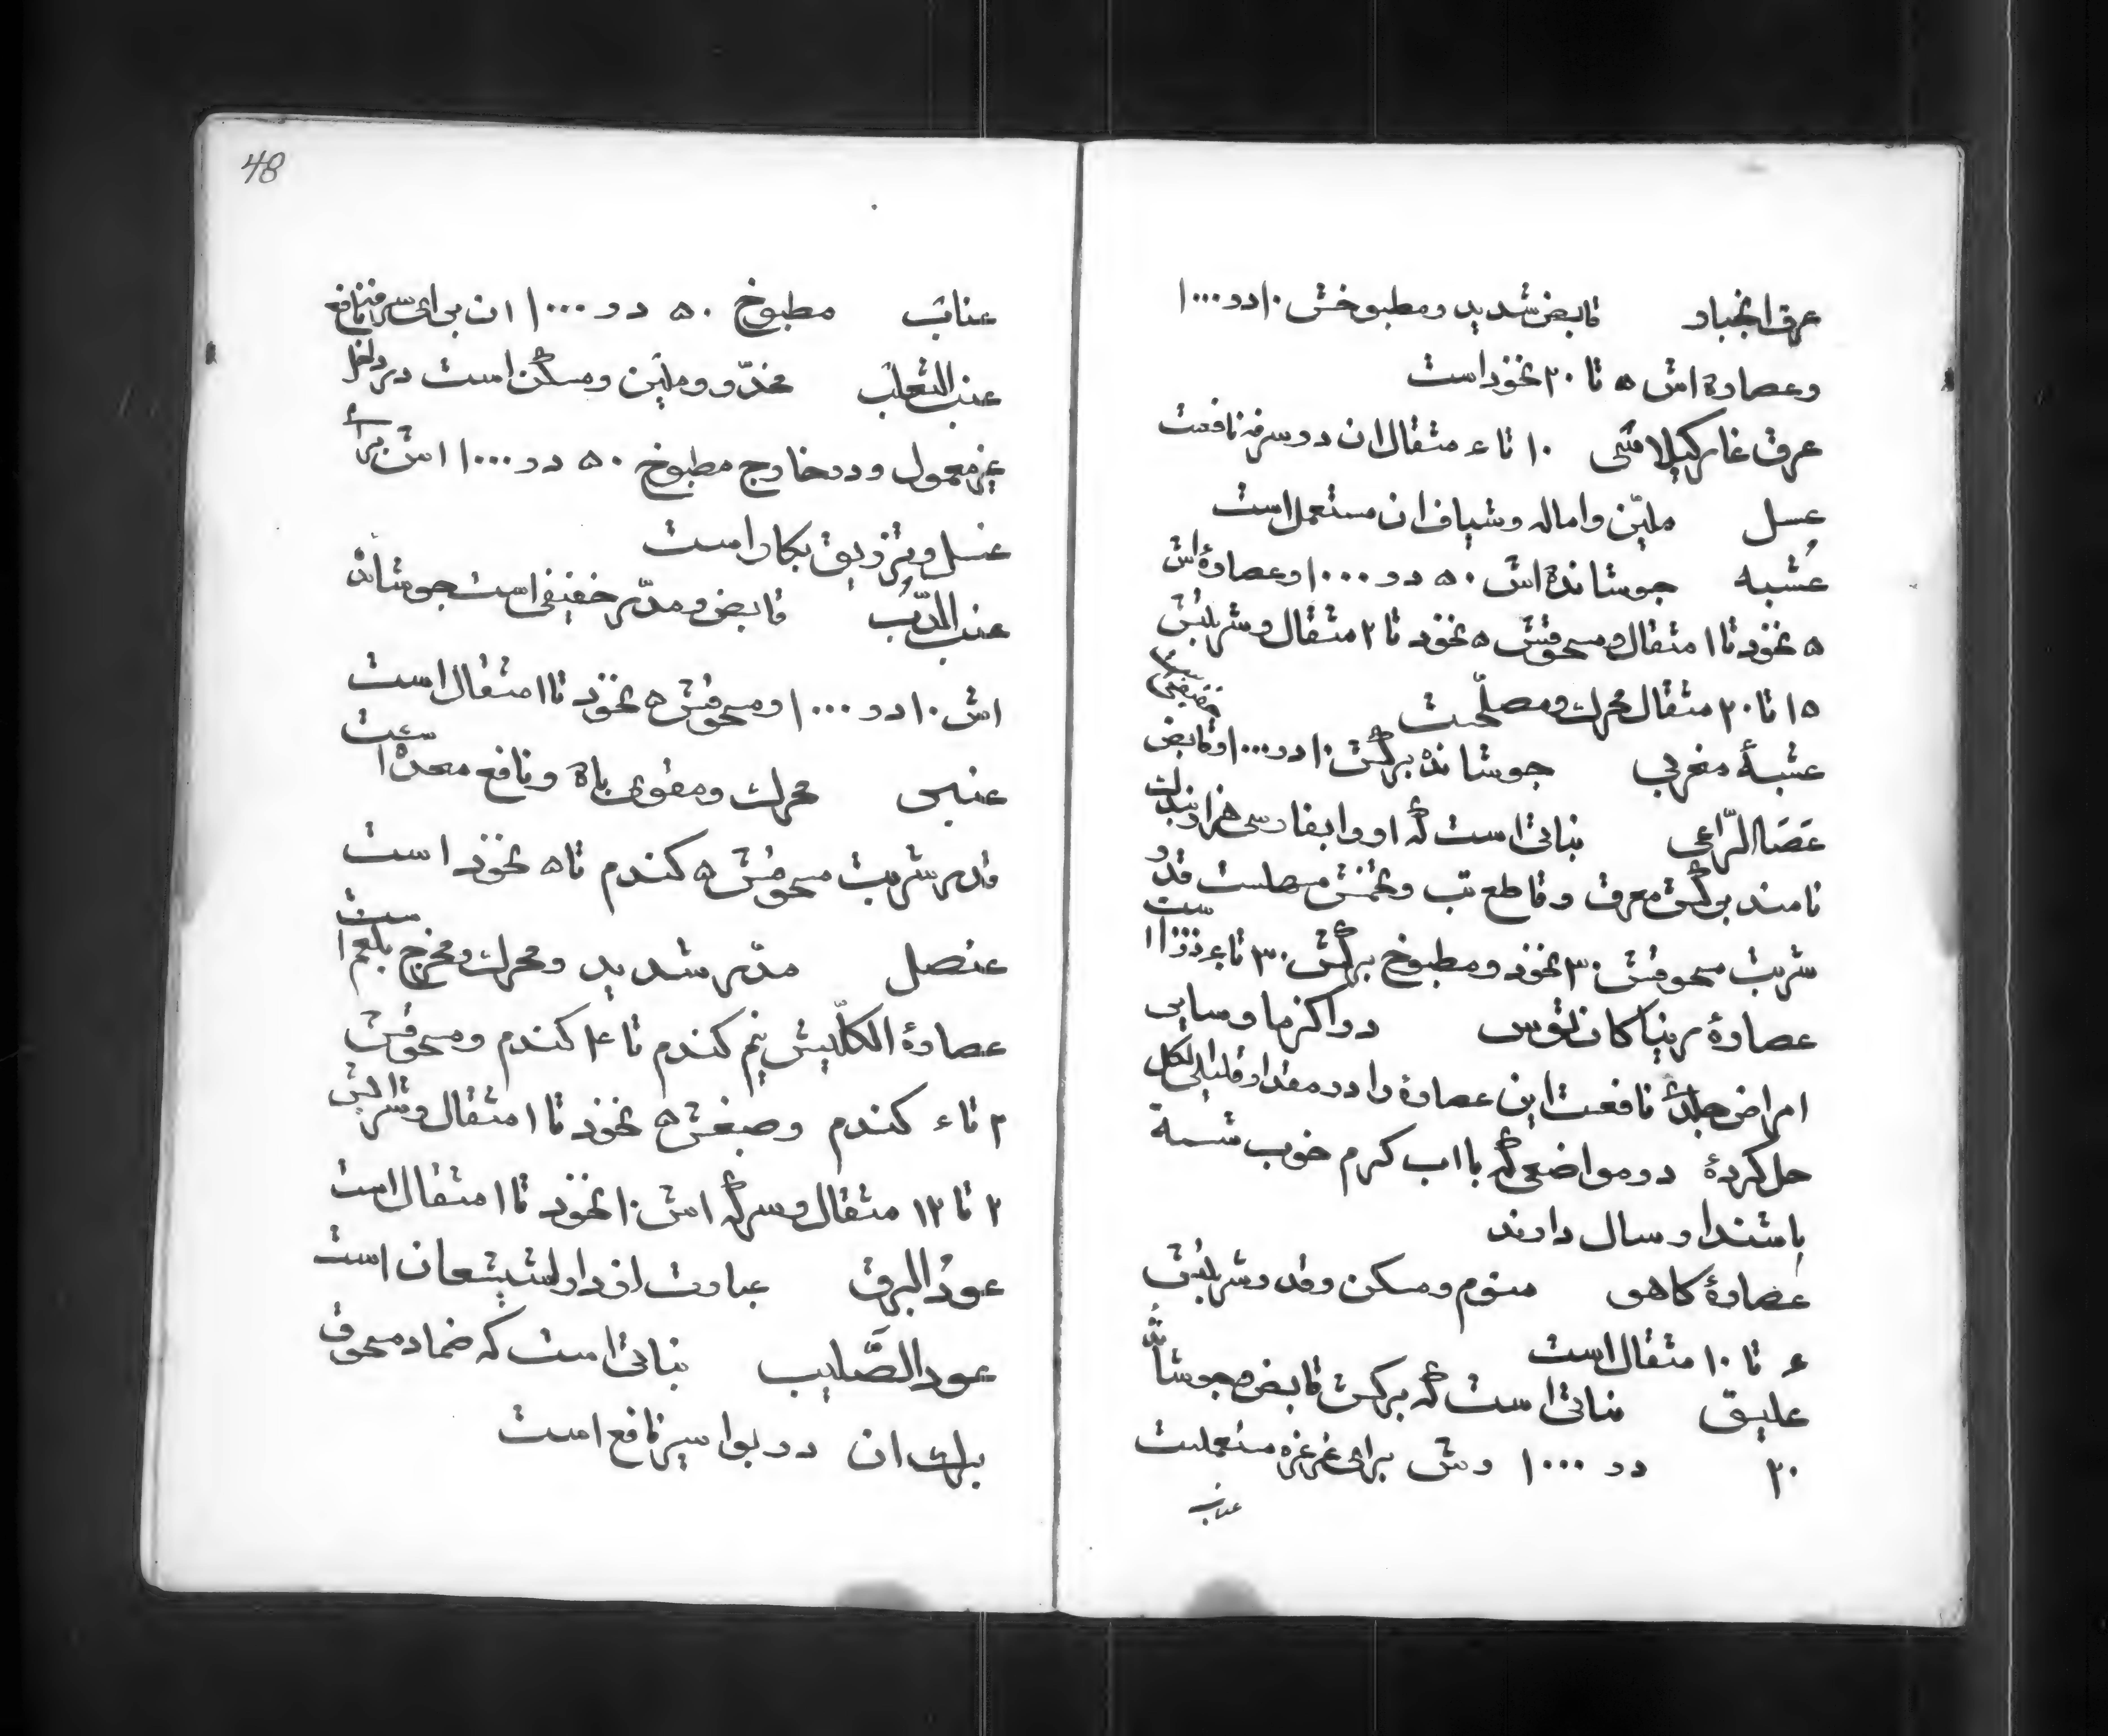 عرق انجبار قابض شدید و مطبوخش ۱۰ در ۱۰۰۰
و عصاره اش ۵ تا ۲۰ نخود است
عرق غار کیلاسی ۱۰ تا ۶ مثقال ان در سرفه نافعست
عسل ملیّن و اماله و شیاف ان مستعمل است
عُشبه جوشانده اش ۵۰ در ۱۰۰۰ و عصارهٔ اش
۵ نخود تا ۱ مثقال و مسحوقش ۵ نخود تا ۲ مثقال و شربتش
۱۵ تا ۲۰ مثقال محرک و مصلّحست
عشبهٔ مغربی جوشانده برگش ۱۰ در ۱۰۰۰ و قابض خفیفی است
عَصَا الرّاعی نباتی است که او را بفارسی هزار بندک
نامند برگش معرق و قاطع تب و تخمش مسهلست قدر
شربت مسحوقش ۳۰ نخود و مطبوخ برگش ۳۰ تا در ۱۰۰۰ است
عصارهٔ در اکزما و سایر
امراض جلدیّه نافعست این عصارهٔ را در مقدار قلیلی الکل
حل کردهٔ در مواضعی که با اب کرم خوب شسته
باشند ارسال دارند
عصارهٔ کاهو منوم و مسکن و قدر شربتش
۶ تا ۱۰ مثقال است
علیق نباتی است که برگش قابض و جوشانده
۲۰ در ۱۰۰۰ وش برای غرغره مستعملست
عناب
48
عناب مطبوخ ۵۰ در ۱۰۰۰ ان برای سرفه نافع
عنب الثعلب مخدّر و ملیّن و مسکن است در داخل
غیر معمول و در خارج مطبوخ ۵۰ در ۱۰۰۰ اش برای
غسل و تزریق بکار است
عنب الدّب قابض و مدّر خفیفی است جوشانده
اش ۱۰ در ۱۰۰۰ و مسحوقش ۵ نخود تا ۱ مثقال است
عنبر محرک و مقوی باه و نافع معده است
قدر شربت مسحوقش ۵ کندم تا ۵ نخود است
عنصل مدّر شدید و محرک و مخرج بلغم است
عصارهٔ الکلّیش نیم کندم تا ۴ کندم و مسحوقش
۲ تا ۶ کندم و صبغش ۵ نخود تا ۱ مثقال و شرابش
۲ تا ۱۲ مثقال و سرکه اش ۱۰ نخود تا ۱ مثقال است
عودُ البرق عبارت از دارشیشعان است
عود الصَّلیب نباتی است که ضماد مسحوق
برک ان در بواسیر نافع است